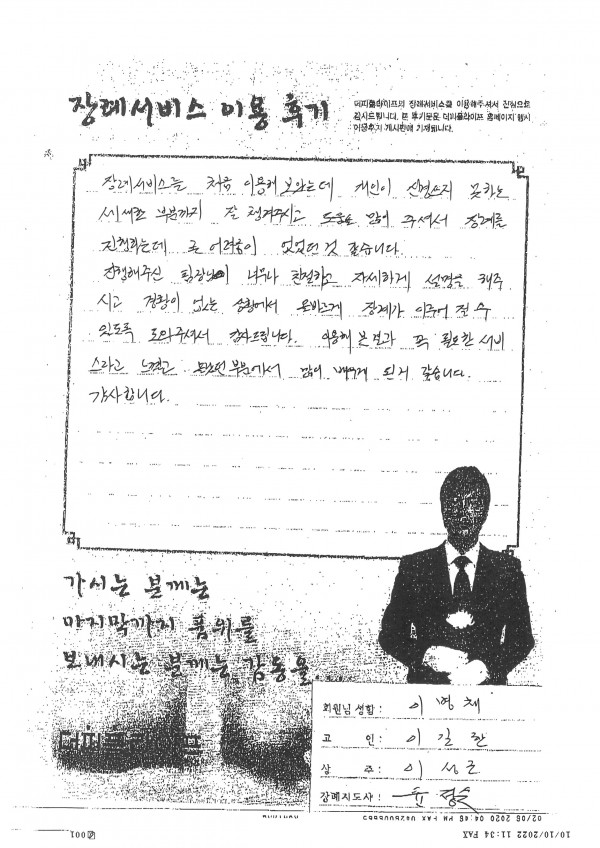 장례서비스 이용 후기
더피플라이프의 장례서비스를 이용해주셔서 진심으로
감사드립니다. 본 후기문은 더피플라이프 홈페이지 행사
이용후기 게시판에 기재됩니다.
장례서비스를 처음 이용해 보았는데 개인이 신경쓰지 못하는
세세한 부분까지 잘 챙겨주시고 도움도 많이 주셔서 장례를
진행하는데 큰 어려움이 없었던 것 같습니다.
진행해주신 팀장님이 너무나 친절하고 자세하게 설명을 해주
시고 경황이 없는 상황에서 올바르게 장례가 이루어 질 수
있도록 도와주셔서 감사드립니다. 이용해 본 결과 꼭 필요한 서비
스라고 느꼈고 부분에서 많이 배우게 된거 같습니다.
감사합니다.
가시는 분께는
마지막까지 품위를
보내시는 분께는 감동을.....
더피플라이프
회원님 성함 : 이명채
고 인 : 이길환
상 주 : 이성근
장례지도사 :
02/06 2020 04:46 PM FAX
10/10/2022 11:34 FAX
001